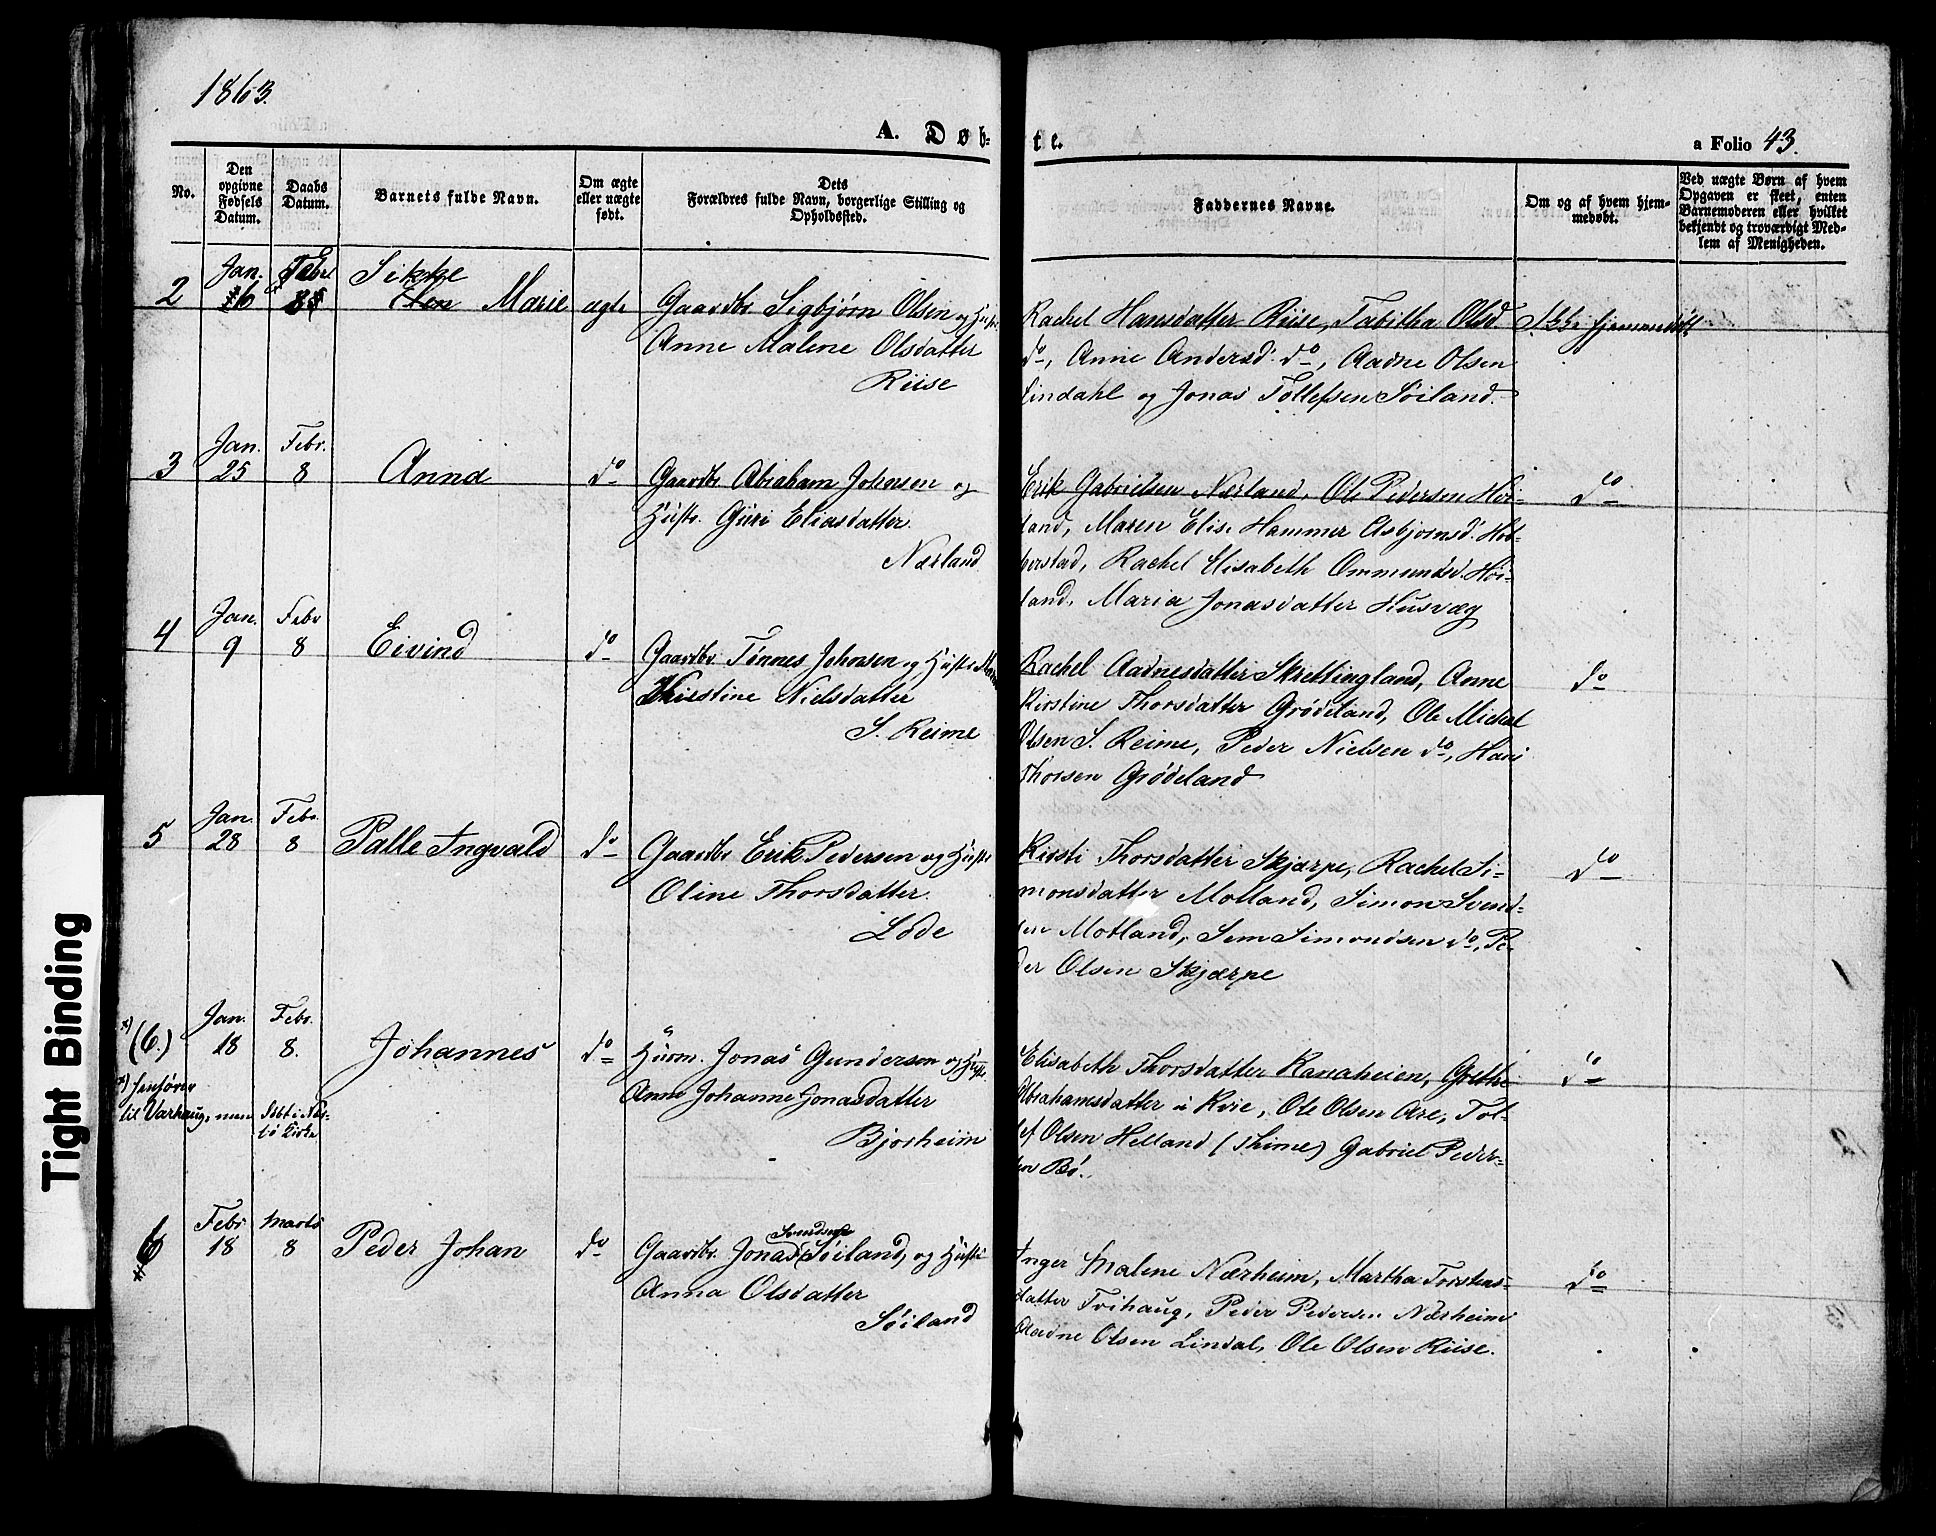 1863.
A. Døb-
te.
a Folio 43.
No.
Den opgivne Fødsels Datum.
Daabs Datum.
Barnets fulde Navn.
Om ægte eller uægte født.
Dets Forældres fulde Navn, borgerlige Stilling og Opholdssted.
Faddernes Navne.
Om og af hvem hjemmedøbt.
Ved uægte Børn af hvem Opgaven er skeet, enten Barnemoderen eller hvilket bekjendt og troværdigt Medlem af Menigheden.
2
Jan. 6
Febr. 8
Sikke
Marie
ægte
Gaardbr. Sigbjørn Olsen og Hustr.
Anne Malene Olsdatter
Riise
Rachel Hansdatter Riise, Tabitha Olsd.
do, Anne Andersd. do, Aadne Olsen
Lindahl og Jonas Tollefsen Søiland.
Ikke hjemmedøbt
3
Jan. 25
Febr. 8
Anna
do
Gaardbr. Abraham Johnsen og
Hustr. Guri Eliasdatter.
Nærland
Erik Gabrielsen Nærland, Ole Pedersen Høi-
land, Maren Elise Hammer Asbjørnsd. Hob-
berstad, Rachel Elisabeth Ommundsd. Høi-
land, Maria Jonasdatter Husvæg
do
4
Jan. 9
Febr 8
Eivind
do
Gaardbr. Tønnes Johnsen og Hustr.
Kirstine Nielsdatter
S. Reime
Rachel Aadnesdatter Skrettingland, Anne
Kirstine Thorsdatter Grødeland, Ole Michel
Olsen S. Reime, Peder Nielsen do, Hans
Thorsen Grødeland
do
5
Jan. 28
Febr. 8
Palle Ingvald
do
Gaardbr. Erik Pedersen og Hustr.
Oline Thorsdatter.
Lode
Kirsti Thorsdatter Skjærpe, Rachel Si-
monsdatter Motland, Simon Svend-
sen Motland, Sem Simondsen do, Pe-
der Olsen Skjærpe
do
x) (6.)
Jan. 18
Febr. 8.
Johannes
do
Huusm. Jonas Gundersen og Hustr.
Anne Johanne Jonasdatter
Bjorheim
Elisabeth Thorsdatter Kanaheien, Grethe
Abrahamsdatter i Kvie, Ole Olsen Are, Tol-
lef Olsen Helland (Thime) Gabriel Peder-
sen Bø.
do
x) henfører
til Varhaug, men døbt i Nær-
bø Kirke
6
Febr. 18
Marts 8
Peder Johan
do
Svendsen
Gaardbr. Jonas Søiland, og Hustr.
Anna Olsdatter
Søiland
Inger Malene Nærheim, Martha Torstens-
datter Tvihaug, Peder Pedersen Nærheim
Aadne Olsen Lindal, Ole Olsen Riise.
do
Tight Binding